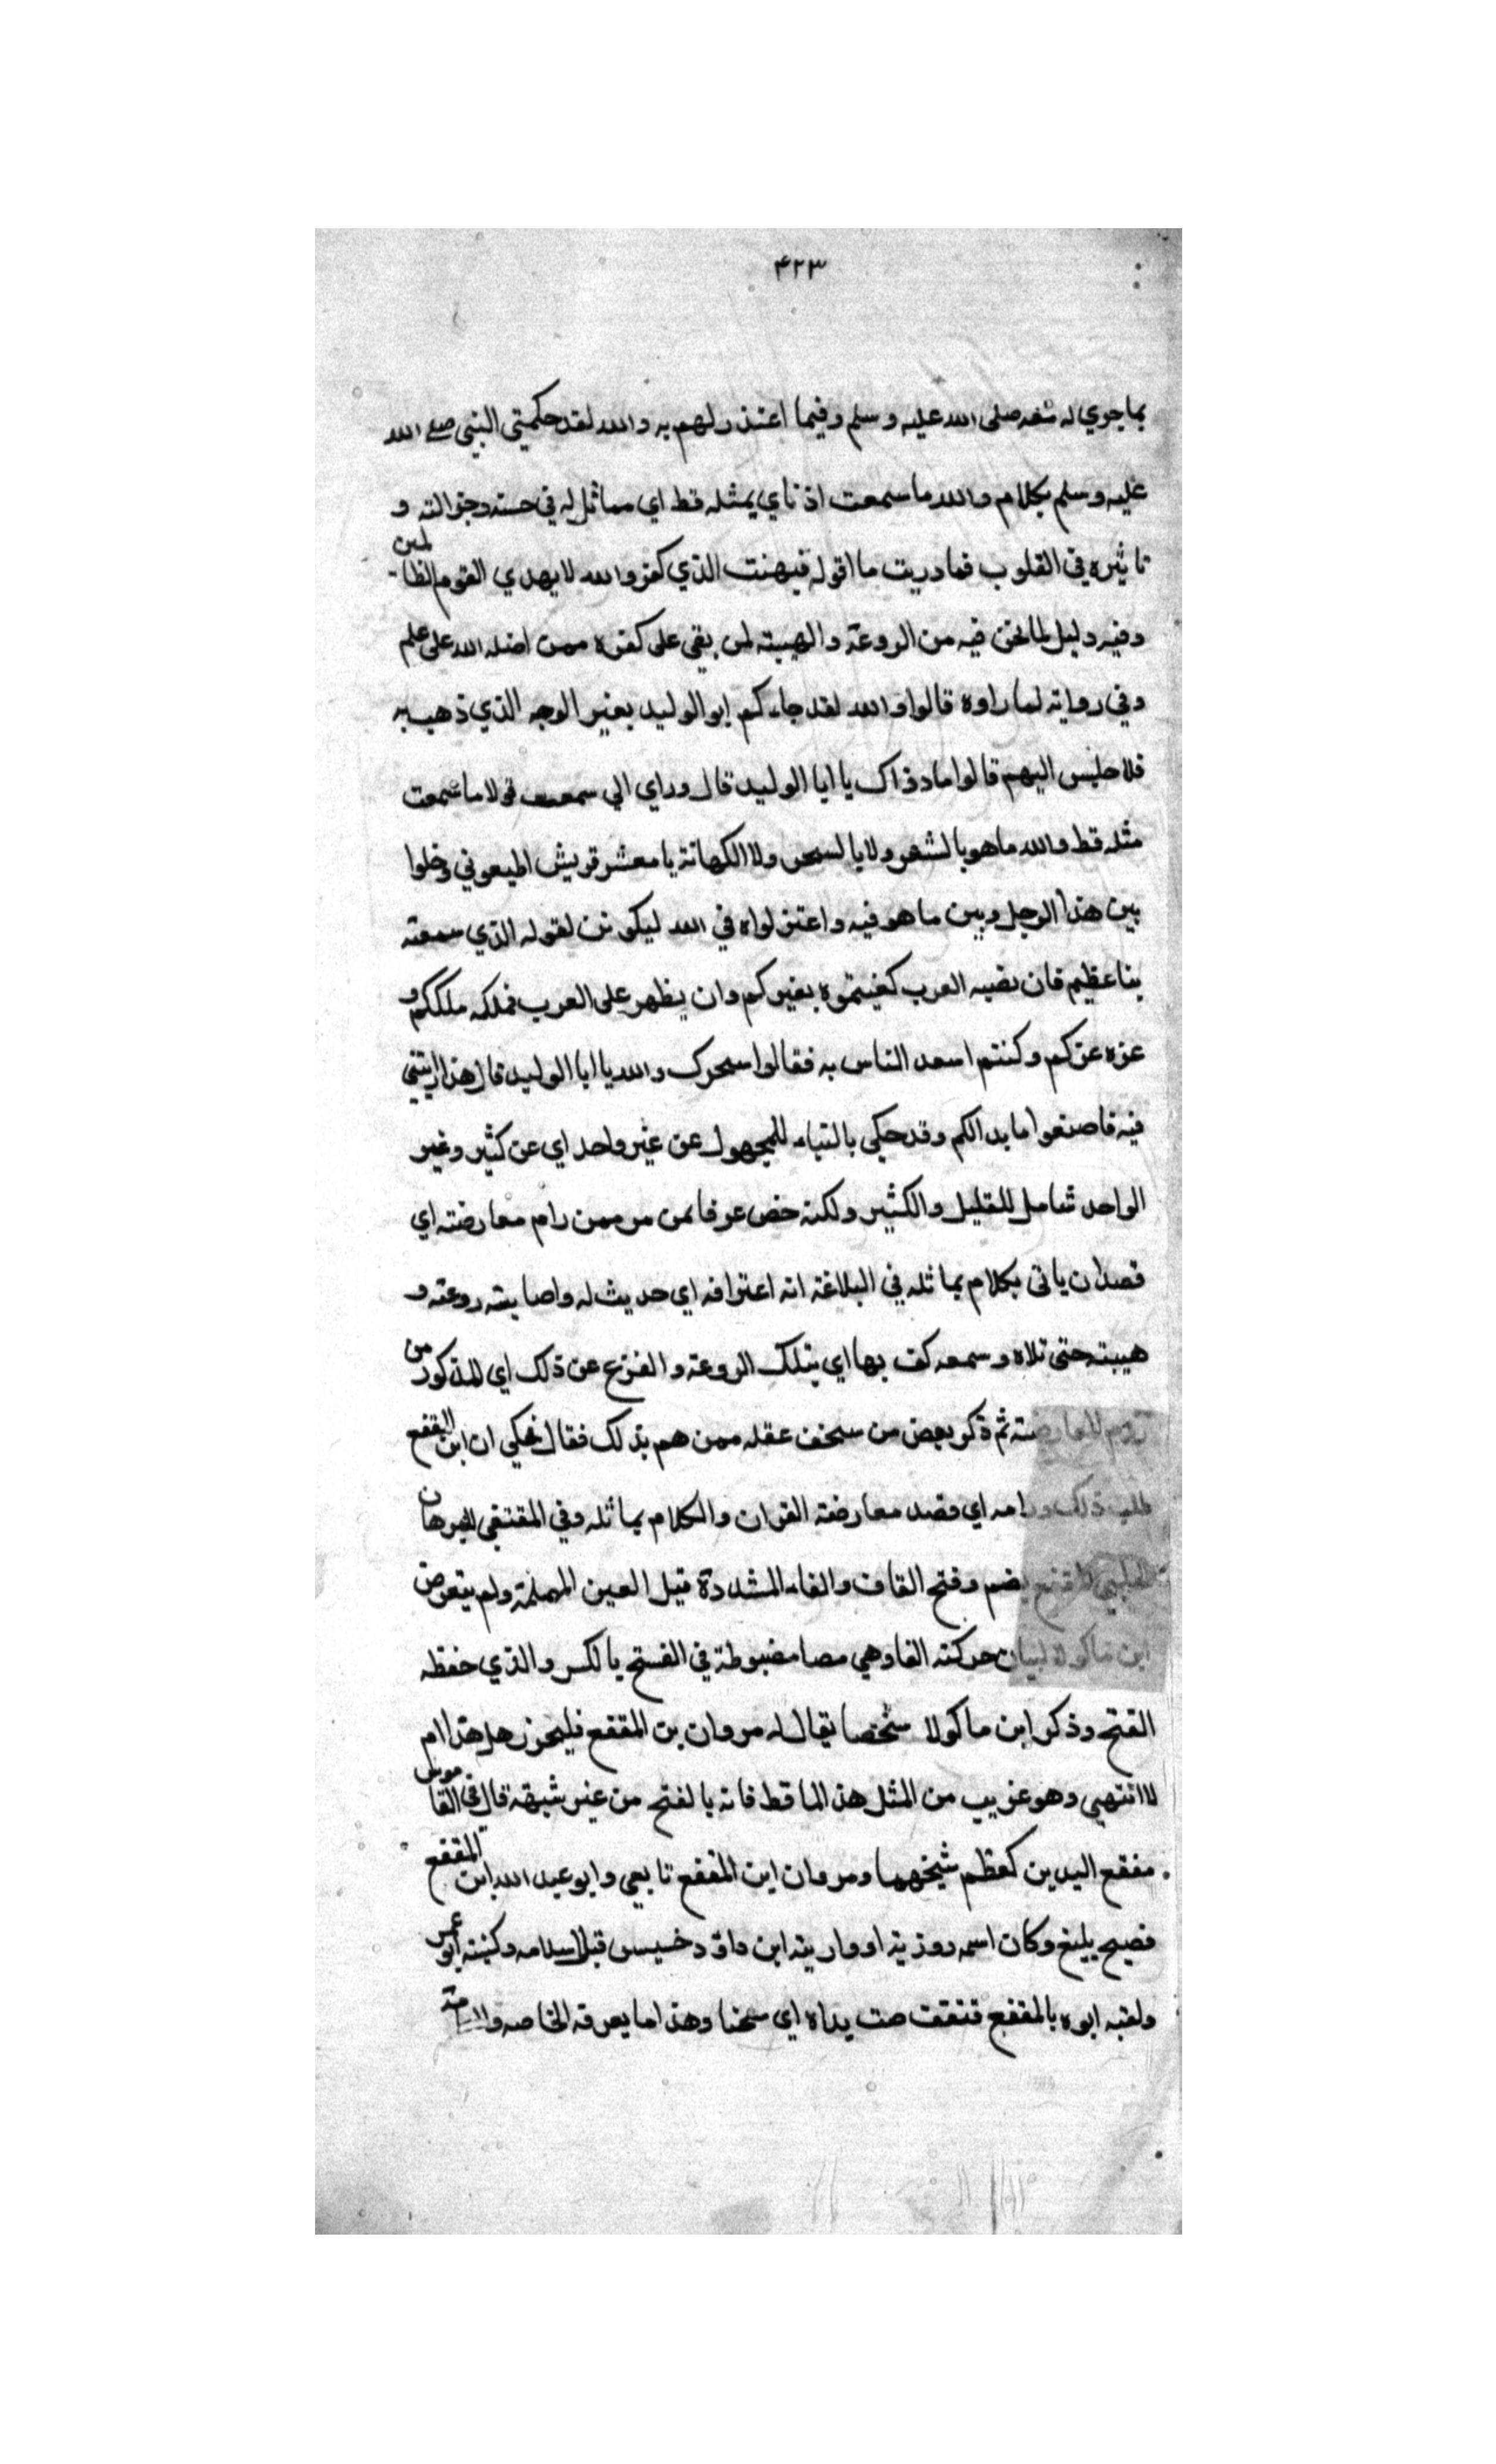 ۴۲۳
بماجري له معه صلى الله عليه وسلم وفيما اعتذر لهم به والله لقد حكمتي النبي صلى الله
عليه وسلم بكلام والله ما سمعت اذناي بمثله قط اي مماثل له في حسنه وجزالته و
تاثيره في القلوب فما دريت ما اقوله فبهت الذي كفر والله لا يهدي القوم الظالمين
وفيه دليل لما نحن فيه من الروعة والهيبة لمن بقي على كفره ممن اضله الله على علم
وفي رواية لما راوه قالوا والله لقد جاءكم ابو الوليد بغير الوجه الذي ذهب به
فلا جلس اليهم قالوا ما وراك يا ابا الوليد قال وراي اني سمعت قولا ما سمعت
مثله قط والله ما هو بالشعر ولا بالسحر ولا الكهانة يا معشر قريش اطيعوني وخلوا
بين هذا الرجل وبين ما هو فيه واعتزلواه في الله ليكونن لقوله الذي سمعته
بنا عظيم فان تصبه العرب كفيتموه بغيركم وان يظهر على العرب فملكه ملككم و
عزه عزكم وكنتم اسعد الناس به فقالوا سحرك والله يا ابا الوليد قال هذا
فيه فاصنعوا ما بدالكم وقد حكي بالبناء للمجهول عن غير واحد اي عن كثير وغير
الواحد شامل للقليل والكثير ولكنه خص عرفا ممن رام معارضته اي
قصدان ياتي بكلام يماثله في البلاغة انه اعتراف اي حديث له واصابته روعته و
هيبته حتى تلاه وسمعه كف بها اي بتلك الروعة والفزع عن ذلك اي المذكور من
روم المعارضته ثم ذكر بعض من سخف عقله ممن هم بذلك فقال فحكي ان ابن المقفع
طلب ذلك ورامه اي قصد معارضة القران والكلام يماثله وفي المقتفي للبرهان
الحلبي المقفع بضم وفتح القاف والفاء المشددة قبل العين المهملة ولم يتعرض
ابن ماكولا لبيان حركته الفا وهي مضبوطة في الفتح بالكسر والذي حفظه
الفتح وذكر ابن ماكولا شخصا يقال له مروان بن المقفع فليحرر هل هذا ام
لا انتهي وهو غريب من المثل هذا الماقط فانه بالفتح من غير شبهة قال في القاموس
مفقع اليدين كمعظم شيخهما ومروان ابن المقفع تابعي وابو عبد الله ابن المقفع
فصيح بليغ وكان اسمه روزبه او ابن داود قبل اسلامه وكنيته ابو عمر
ولقبه ابوه بالمقفع يداه اي وهذا ما يعرفه الخاصه و